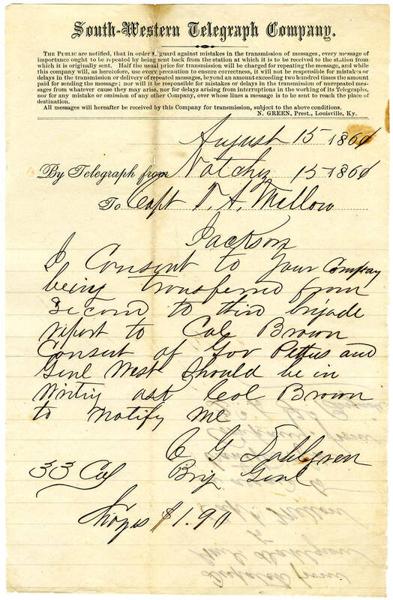 South-Western Telegraph Company.
THE PUBLIC are notified, that in order to guard against mistakes in the transmission of messages, every message of
importance ought to be repeated by being sent back from the station at which it is to be received to the station from
which it is originally sent. Half the usual price for transmission will be charged for repeating the message, and while
this company will, as heretofore, use every precaution to ensure correctness, it will not be responsible for mistakes or
delays in the transmission or delivery of repeated messages, beyond an amount exceeding two hundred times the amount
paid for sending the message; nor will it be responsible for mistakes or delays in the transmission of unrepeated mes-
sages from whatever cause they may arise, nor for delays arising from interruptions in the working of its Telegraphs,
nor for any mistake or omission of any other Company, over whose lines a message is to be sent to reach the place of
destination.
All messages will hereafter be received by this Company for transmission, subject to the above conditions.
N. GREEN, Prest., Louisville, Ky.
August 15 186
By Telegraph from Natchez 15 186
To Capt T. A. Mellow
Jackson
I Consent to your Company
being transferred from
Second to third brigade
report to Col Brown
Consent of Gov Pettus and
Genl West should be in
Writing ask Col Brown
to notify me
C G Dahlgren
Brig Genl
33 Col
$1.90